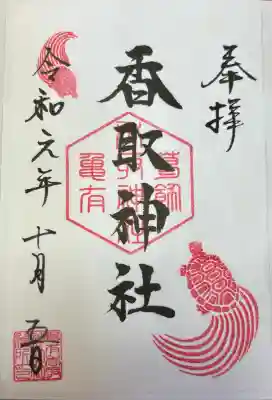 奉拝
香取神社
葛飾
亀有
令和元年十月五日